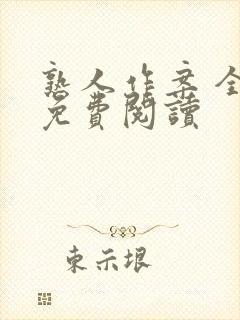 熟人作案全
免費閱讀
東示垠